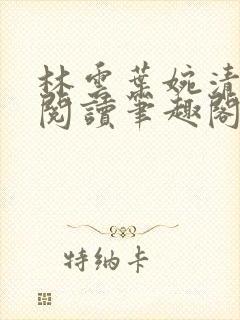 林雲葉婉清
閱讀筆趣閣
特纳卡